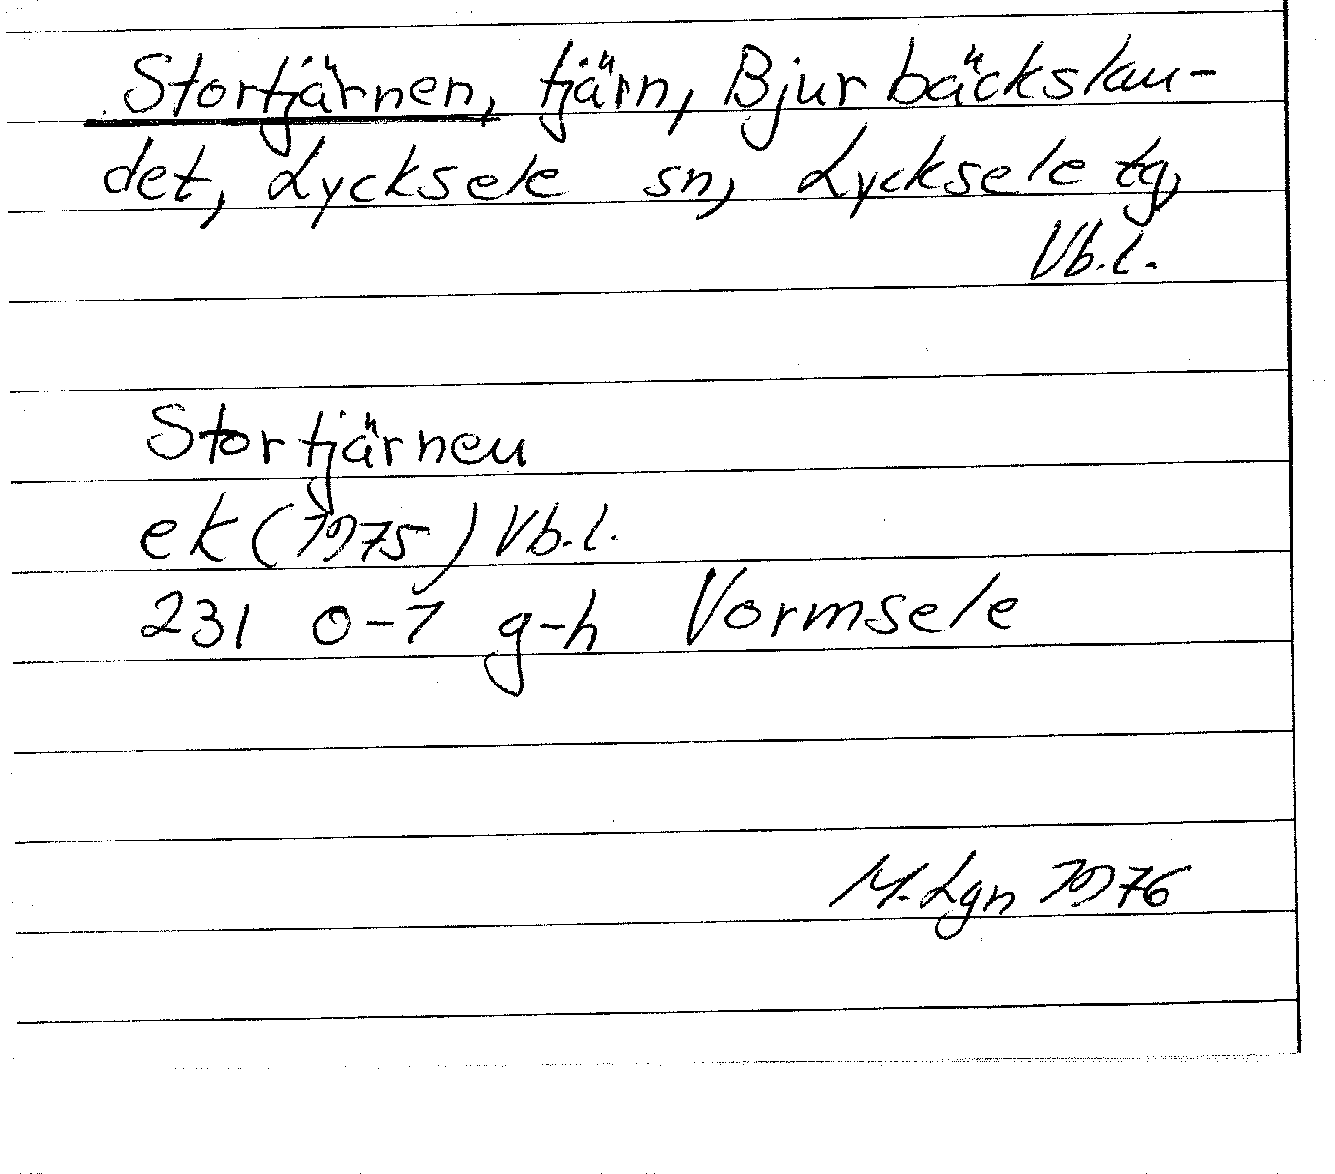 Stortjärnen, tjärn, Bjurbäckslan-
det, Lycksele sn, Lycksele tg,
Vb.l.
Stortjärnen
ek (1975) Vb.l.
231 0-1 g-h Vormsele
M. Lgn 1976